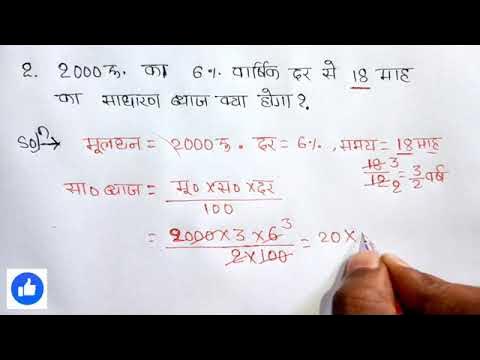 2. 2000रु. का 6% वार्षिक दर से 18 माह
का साधारण ब्याज क्या होगा?
Solⁿ→ मूलधन = 2000रु. दर = 6%, समय = 18 माह
18 3
12 2 = 3/2 वर्ष
सा० ब्याज = मू० × स० × दर
100
= 2000 × 3 × 6 3
2 × 100
= 20 ×